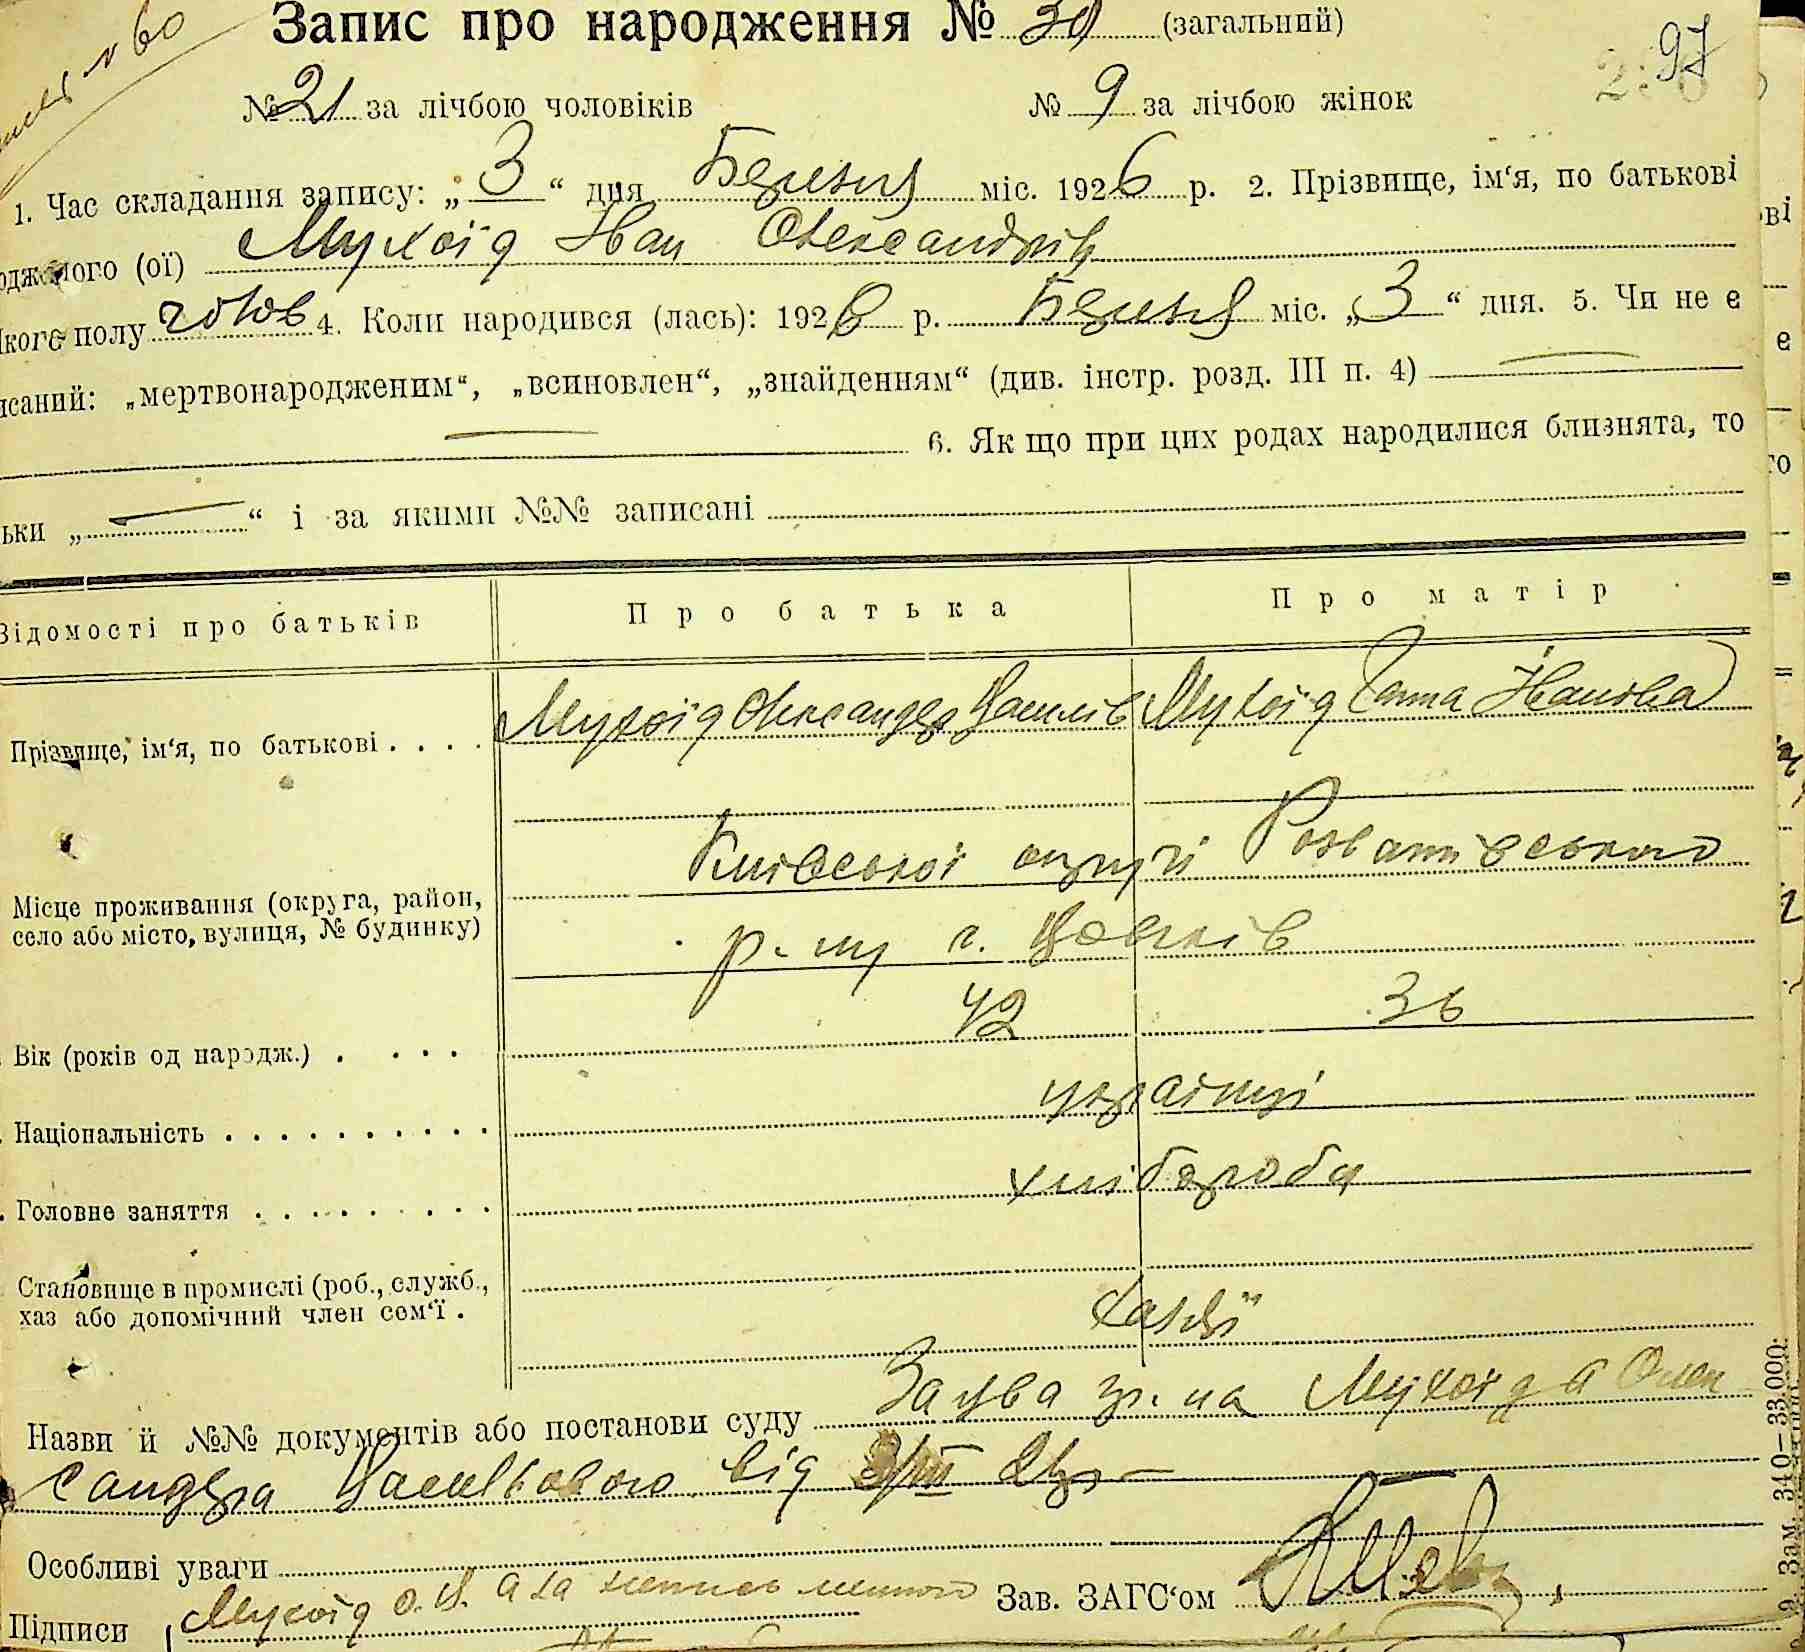 Запис про народження № 30 (загальний)
97
№ 21 за лічбою чоловіків № 9 за лічбою жінок
1. Час складання запису: „ 3 “ дня Березня міс. 1926 р. 2. Прізвище, ім‘я, по батькові
одженого (ої) Мухоїд Іван Олександрів
якого полу чолов 4. Коли народився (лась): 1926 р. Березня міс. „3“ дня. 5. Чи не є
исаний: „мертвонародженим“, „всиновлен“, „знайденням“ (див. інстр. розд. III п. 4) —
— 6. Як що при цих родах народилися близнята, то
ьки „—“ і за якими №№ записані
Відомості про батьків Про батька Про матір
Прізвище, ім‘я, по батькові . . . . Мухоїд Олександер Василів Мухоїд Ганна Іванова
Київської округи Розважівського
Місце проживання (округа, район,
село або місто, вулиця, № будинку)
р-ну с.
Вік (років од народж.) . . . . . 42 36
Національність . . . . . . . . . . українці
Головне заняття . . . . . . . . . хлібороби
Становище в промислі (роб., служб.,
хаз або допомічний член сем‘ї .
хазяї
Назви й №№ документів або постанови суду Заява гр-на Мухоїда Олек
сандра Васильового від 3/III 26р —
Особливі уваги
Підписи Мухоїд О. В. а за Зав. ЗАГС‘ом
9. Зам. 340—33.000.